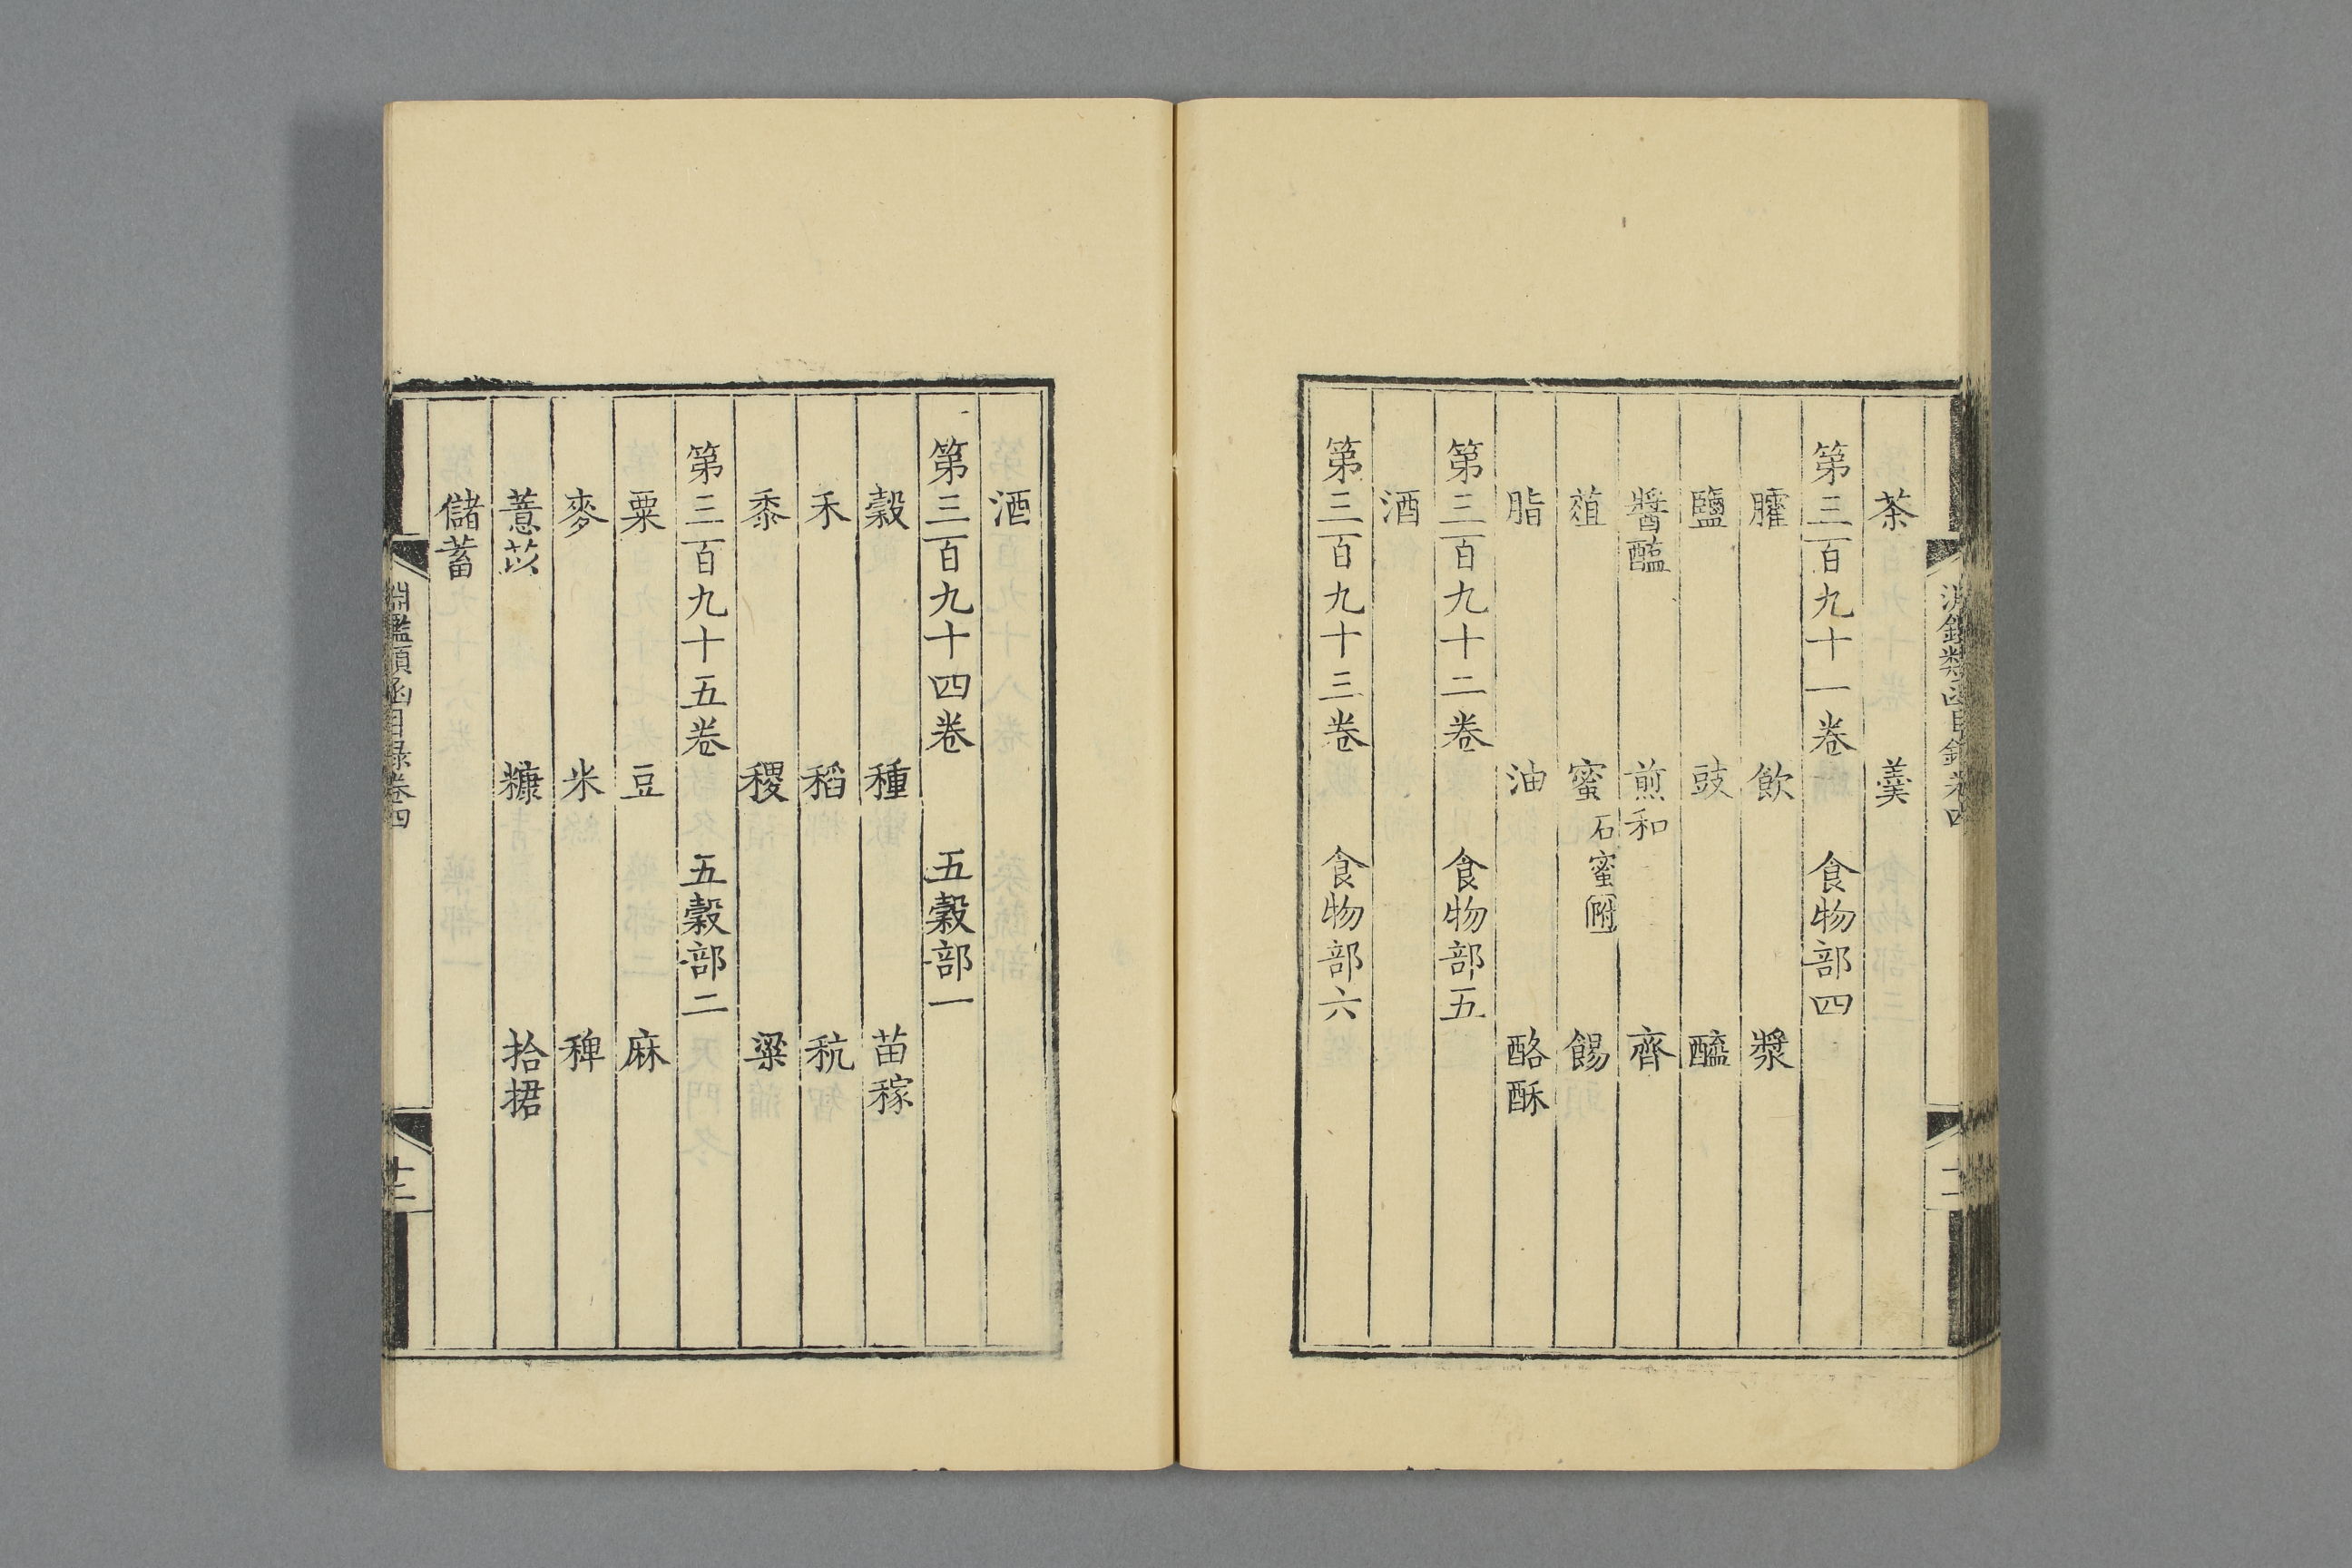 茶 羹
第三百九十一卷 食物部四
臛 飲 漿
鹽 豉 醯
醬醢 煎和 齊
葅 蜜石蜜附 餳
脂 油 酪酥
第三百九十二卷 食物部五
酒
第三百九十三卷 食物部六
酒
第三百九十四卷 五穀部一
穀 種 苗稼
禾 稻 秔
黍 稷 粱
第三百九十五卷 五穀部二
粟 豆 麻
麥 米 稗
薏苡 糠 拾捃
儲蓄
淵鑑類函目錄卷四